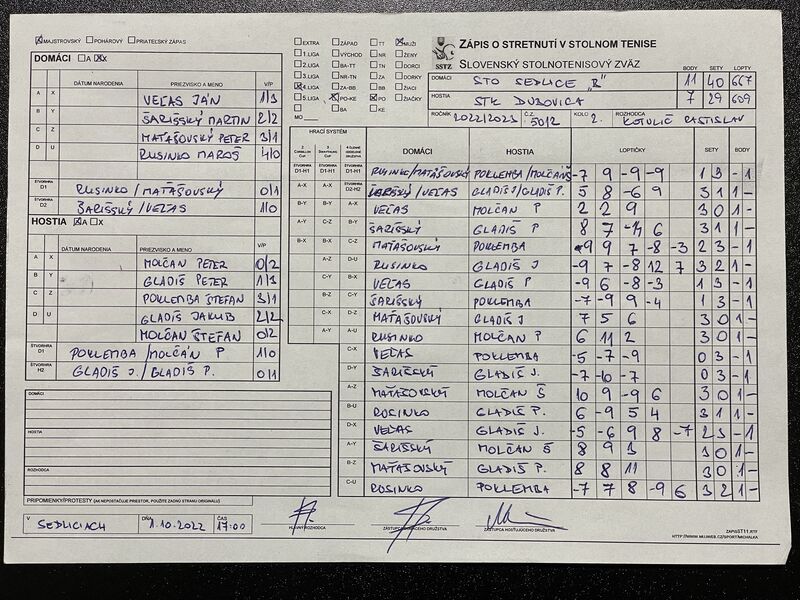 MAJSTROVSKÝ POHÁROVÝ PRIATEĽSKÝ ZÁPAS
DOMÁCI A X
DÁTUM NARODENIA PRIEZVISKO A MENO V/P
A X VEĽAS JÁN 1/3
B Y ŠARIŠSKÝ MARTIN 2/2
C Z MATAŠOVSKÝ PETER 3/1
D U RUSINKO MAROŠ 4/0
ŠTVORHRA D1 RUSINKO/MATAŠOVSKÝ 0/1
ŠTVORHRA D2 ŠARIŠSKÝ/VEĽAS 1/0
HOSTIA A X
DÁTUM NARODENIA PRIEZVISKO A MENO V/P
A X MOLČAN PETER 0/2
B Y GLADIŠ PETER 1/3
C Z POKLEMBA ŠTEFAN 3/1
D U GLADIŠ JAKUB 2/2
MOLČAN ŠTEFAN 0/2
ŠTVORHRA D1 POKLEMBA/MOLČAN P 1/0
ŠTVORHRA H2 GLADIŠ J./GLADIŠ P. 0/1
DOMÁCI
HOSTIA
ROZHODCA
PRIPOMIENKY/PROTESTY (AK NEPOSTAČUJE PRIESTOR, POUŽITE ZADNÚ STRANU ORIGINÁLU)
V SEDLICIACH DŇA 1.10.2022 ČAS 17:00
EXTRA ZÁPAD TT MUŽI
1.LIGA VÝCHOD NR ŽENY
2.LIGA BA-TT TN DORCI
3.LIGA NR-TN ZA DORKY
4.LIGA ZA-BB BB ŽIACI
5.LIGA PO-KE PO ŽIAČKY
BA KE
MO
SSTZ
ZÁPIS O STRETNUTÍ V STOLNOM TENISE
SLOVENSKÝ STOLNOTENISOVÝ ZVÄZ
BODY SETY LOPTY
DOMÁCI STO SEDLICE "B" 11 40 667
HOSTIA STK DUBOVICA 7 29 609
ROČNÍK 2022/2023 Č.Z. 5012 KOLO 2. ROZHODCA KOTULIČ RASTISLAV
HRACÍ SYSTÉM
DOMÁCI HOSTIA LOPTIČKY SETY BODY
D1-H1 D1-H1 D1-H1 RUSINKO/MATAŠOVSKÝ POKLEMBA/MOLČAN -7 9 -9 -9 1 3 -1
A-X A-X D2-H2 ŠARIŠSKÝ/VEĽAS GLADIŠ J/GLADIŠ P. 5 8 -6 9 3 1 1-
B-Y B-Y A-X VEĽAS MOLČAN P 2 2 9 3 0 1-
A-Y C-Z B-Y ŠARIŠSKÝ GLADIŠ P 8 7 -14 6 3 1 1-
B-X B-X C-Z MATAŠOVSKÝ POKLEMBA -9 9 7 -8 -3 2 3 -1
A-Z D-U RUSINKO GLADIŠ J -9 7 -8 12 7 3 2 1-
C-Y B-X VEĽAS GLADIŠ P -9 6 -8 -3 1 3 -1
B-Z C-Y ŠARIŠSKÝ POKLEMBA -7 -9 9 -4 1 3 -1
C-X D-Z MATAŠOVSKÝ GLADIŠ J 7 5 6 3 0 1-
A-Y A-U RUSINKO MOLČAN P 6 11 2 3 0 1-
C-X VEĽAS POKLEMBA -5 -7 -9 0 3 -1
D-Y ŠARIŠSKÝ GLADIŠ J. -7 -10 -7 0 3 -1
A-Z MATAŠOVSKÝ MOLČAN Š 10 9 -9 6 3 0 1-
B-U RUSINKO GLADIŠ P. 6 -9 5 4 3 1 1-
D-X VEĽAS GLADIŠ J. -5 -6 9 8 -7 2 3 -1
A-Y ŠARIŠSKÝ MOLČAN Š 8 9 3 3 0 1-
B-Z MATAŠOVSKÝ GLADIŠ P. 8 8 11 3 0 1-
C-U RUSINKO POKLEMBA -7 7 8 -9 6 3 2 1-
HLAVNÝ ROZHODCA ZÁSTUPCA DOMÁCEHO DRUŽSTVA ZÁSTUPCA HOSŤUJÚCEHO DRUŽSTVA
ZAPISST11.RTF
HTTP://WWW.MUJWEB.CZ/SPORT/MICHALKA